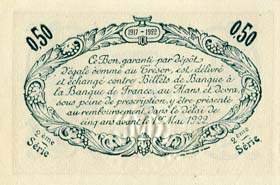 0,50
1917-1922
0,50
Ce Bon, garanti par dépôt
d'égale somme au Trésor, est délivré
et échangé contre Billets de Banque à
la Banque de France, au Mans et devra,
sous peine de prescription, y être présenté
au remboursement dans le délai de
cinq ans avant le 1er Mai 1922
2ème
Série
2ème
Série